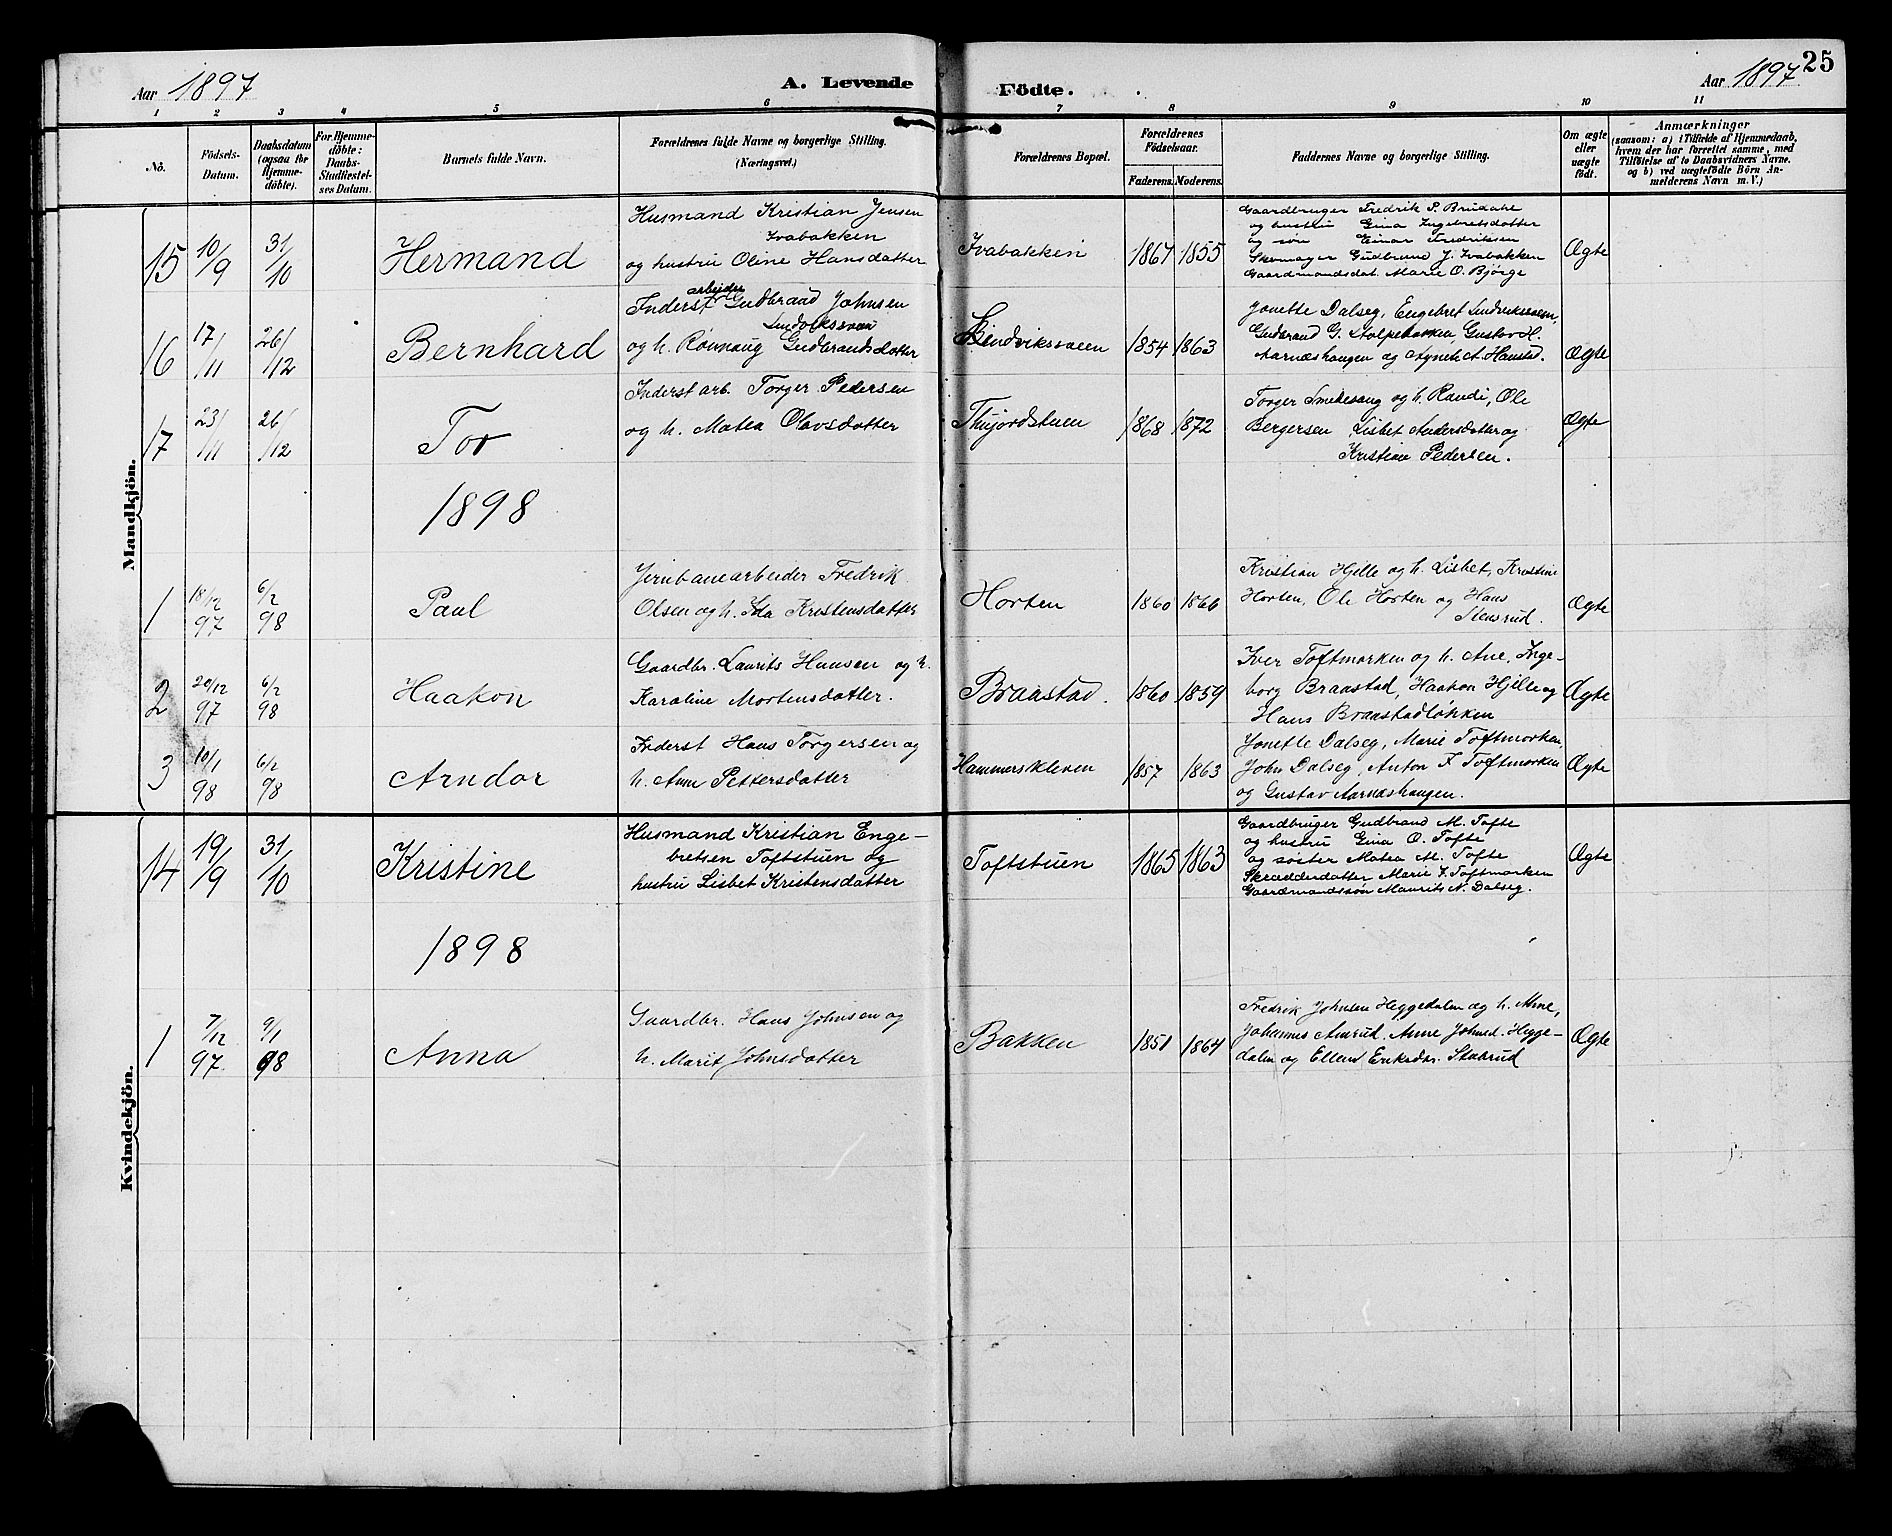 Aar 1897
A. Levende Födte.
Aar 1897
25
1 2 3 4 5 6 7 8 9 10 11
No.
Födsels-
Datum.
Daabsdatum
(ogsaa for
Hjemme-
döbte).
For Hjemme-
döbte:
Daabs-
Stadfæstel-
ses Datum.
Barnets fulde Navn.
Forældrenes fulde Navne og borgerlige Stilling.
(Næringsvei.)
Forældrenes Bopæl.
Forældrenes
Födselsaar.
Faderens. Moderens.
Faddernes Navne og borgerlige Stilling.
Om ægte
eller
uægte
født.
Anmærkninger
(saasom: a) i Tilfælde af Hjemmedaab,
hvem der har forrettet samme, med
Tilföielse af to Daabsvidners Navne.
og b) ved uægtefödte Börn An-
melderens Navn m. V.)
Mandkjön.
15
10/9
31/10
Hermand
Husmand Kristian Jensen
Ivabakken
og hustru Oline Hansdatter
Ivabakken
1867 1855
Gaardbruger Fredrik P. Brudahl
og hustru Gina Ingebretsdatter
og søn Einar Fredriksen
Skomager Gudbrand J. Ivabakken
Gaardmandsdat. Marie O. Bjørge
Ægte
16
17/11
26/12
Bernhard
arbejder
Inderst Gudbraad Johnsen
og h. Rønnaug Gudbrandsdatter
Lindviksveen
1854 1863
Jonette Dalseg, Engebret Lindviksveen,
Gudbrand G. Stolpebakken, Gustav H.
Aarnæshaugen og Agnete A. Haustad.
Ægte
17
23/11
26/12
Tor
Inderst arb. Torger Pedersen
og h. Matea Olavsdatter
1868 1872
Torger Smedesang og h. Randi, Ole
Bergersen Lisbet Andersdatter og
Kristian Pedersen.
Ægte
1898
1
18/12 97
6/2 98
Paul
Jernbanearbeider Fredrik
Olsen og h. Ida Kristensdatter
Horten
1860 1866
Kristian Hjelle og h. Lisbet, Kristine
Horten, Ole Horten og Hans
Stensrud.
Ægte
2
20/12 97
6/2 98
Haakon
Gaardbr. Laurits Hansen og h.
Karoline Mortensdatter.
Braastad.
1860 1859
Iver Toftmarken og h. Ane, Inge-
borg Braastad, Haakon Hjelle og
Hans Braastadløkken
Ægte
3
10/1 98
6/2 98
Arndor
Inderst Hans Torgersen og
h. Anne Pettersdatter
Hammerskleven
1857 1863
Jonette Dalseg, Marie Toftmarken,
John Dalseg, Anton F. Toftmarken
og Gustav Aarnæshaugen.
Ægte
Kvindekjön.
14
19/9
31/10
Kristine
Husmand Kristian Enge-
bretsen Toftstuen og
hustru Lisbet Kristensdatter
Toftstuen
1865 1863
Gaardbruger Gudbrand M. Tofte
og hustru Gina O. Tofte
og søster Matea M. Tofte
Skrædderdatter Marie F. Toftmarken
Gaardmandssøn Maurits N. Dalseg.
Ægte
1898
1
7/12 97
9/1 98
Anna
Gaardbr. Hans Johnsen og
h. Marit Johnsdatter
Bakken
1851 1864
Fredrik Johnsen Heggedalen og h. Anne,
Johannes Amrud, Anne Johnsd. Hegge-
dalen og Ellen Eriksdtr. Stabrud
Ægte